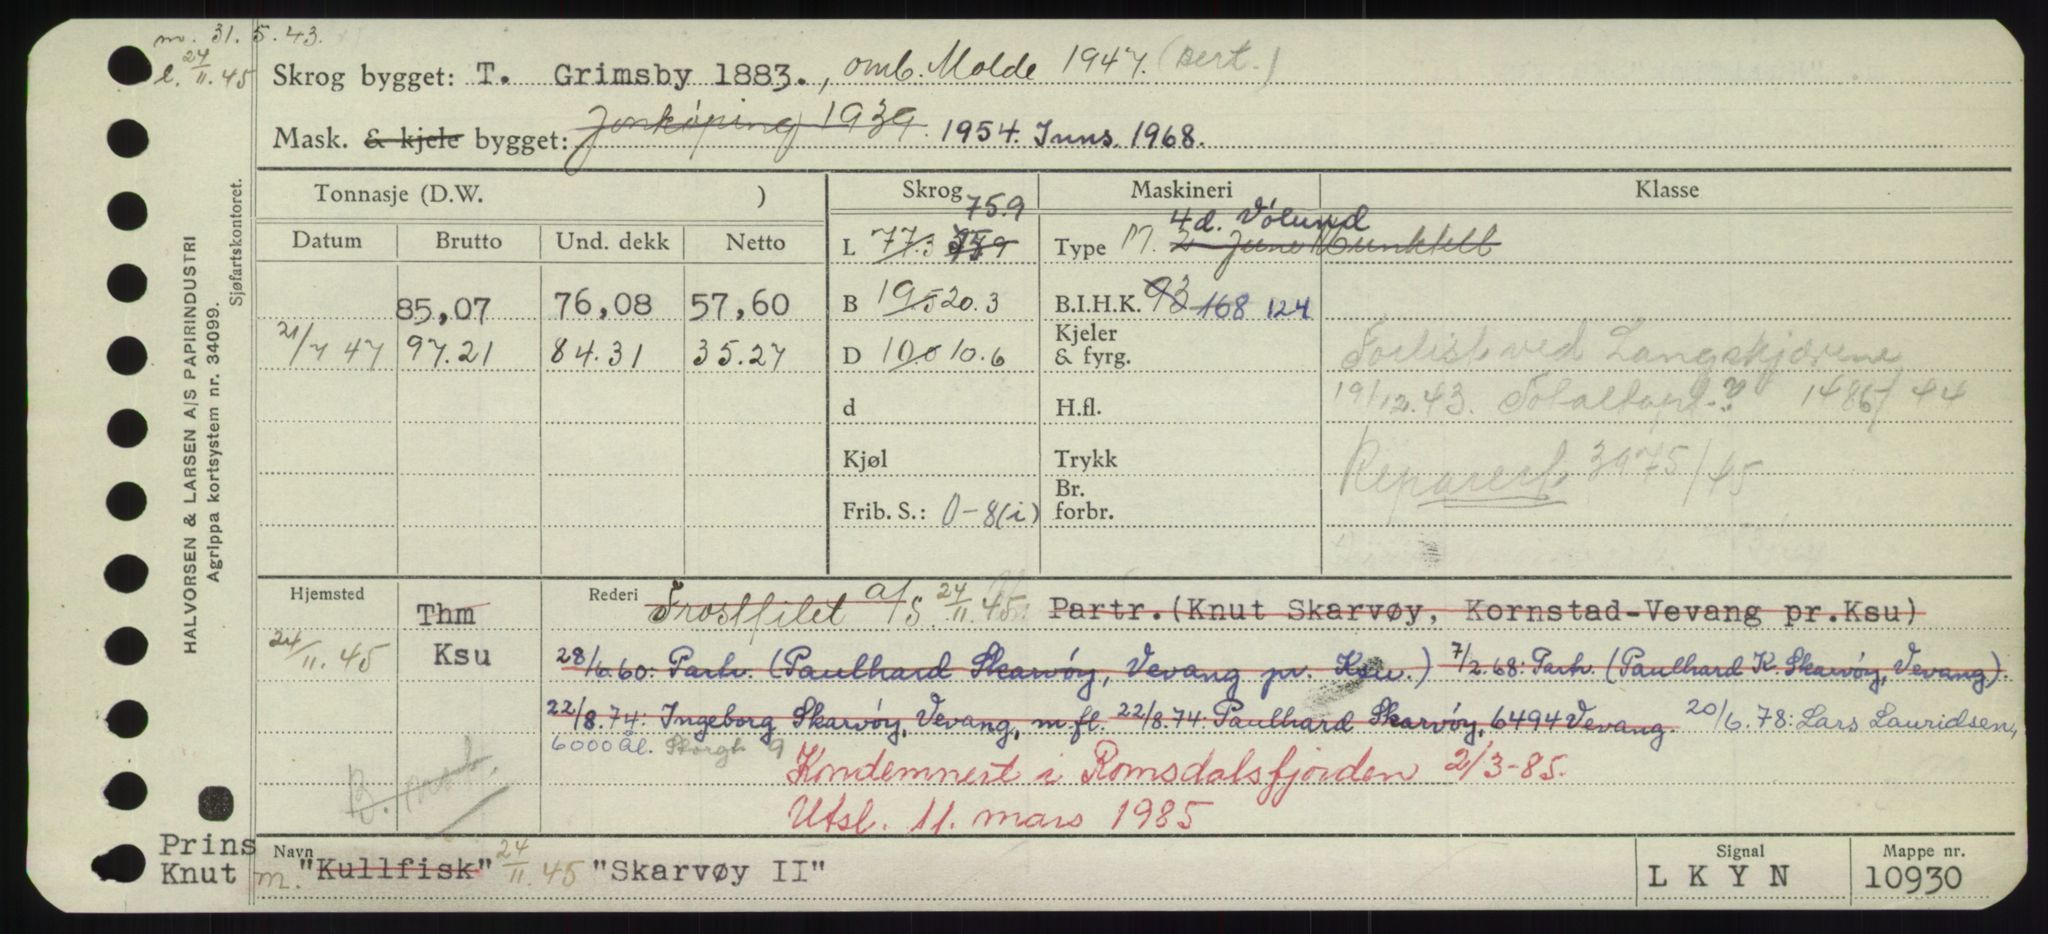 m. 31.5.43.
l. 24/11.45
Skrog bygget: T. Grimsby 1883., omb. Molde 1947. (Sert.)
Mask. & kjele bygget: Jönköping 1939. 1954. Inns. 1968.
Tonnasje (D.W. ) Skrog Maskineri Klasse
Datum Brutto Und. dekk Netto
L 77.3 75.9 75.9
Type M. 2 June Munktell 4 d. Völund
85,07 76,08 57,60
B 19.5 20.3
B.I.H.K. 93 168 124
21/7 47 97.21 84.31 35.27
D 10.0 10.6
Kjeler & fyrg.
Forlist ved Langskjærene
d
H.fl.
19/12.43. Totaltapt? 1486/44
Kjøl
Trykk
Reparert 3975/45
Frib. S.: 0-8(i)
Br. forbr.
Hjemsted
Thm
24/11.45 Ksu
Rederi
Frostfilet A/S. 24/11.45 Partr.(Knut Skarvøy, Kornstad-Vevang pr.Ksu)
28/6.60: Partr. (Paulhard Skarvøy, Vevang pr. Ksu.) 7/2.68: Partr. (Paulhard K. Skarvøy, Vevang).
22/8.74: Ingeborg Skarvøy, Vevang, m.fl. 22/8.74: Paulhard Skarvøy, 6494 Vevang. 20/6.78: Lars Lauridsen,
6000 Ål. Skorgt 9
Kondemnert i Romsdalsfjorden 2/3-85.
Utsl. 11. mars 1985
B. mot.
Prins Knut
Navn
m. "Kullfisk" 24/11.45 "Skarvøy II"
Signal
L K Y N
Mappe nr.
10930
HALVORSEN & LARSEN A/S PAPIRINDUSTRI
Agrippa kortsystem nr. 34099.
Sjøfartskontoret.